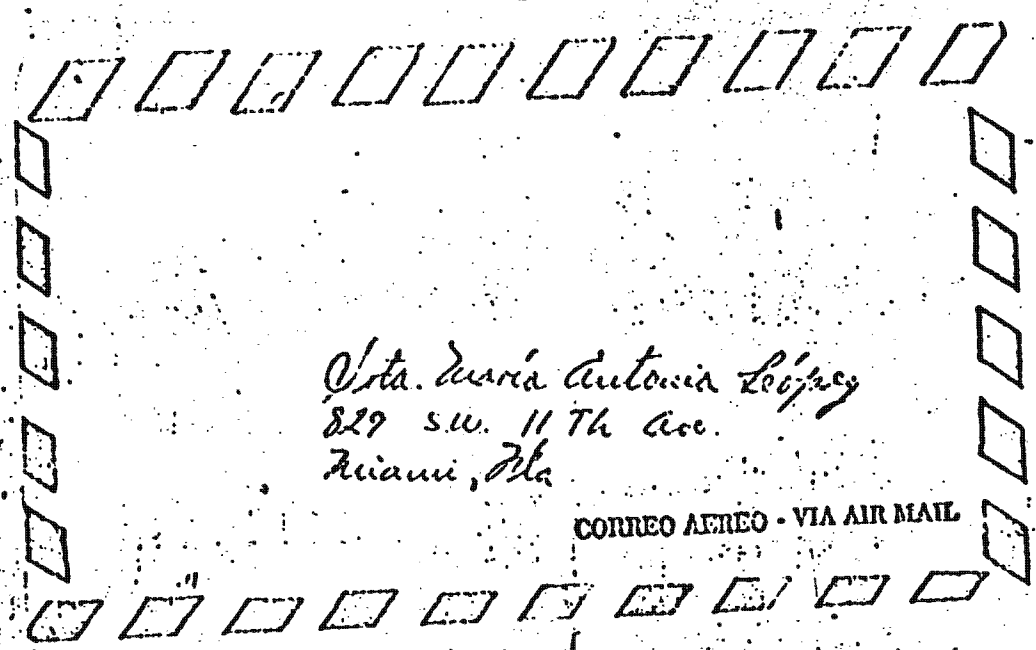 Srta. María Antonia López
827 S.W. 11 Th Ave.
Miami, Fla
CORREO AEREO - VIA AIR MAIL